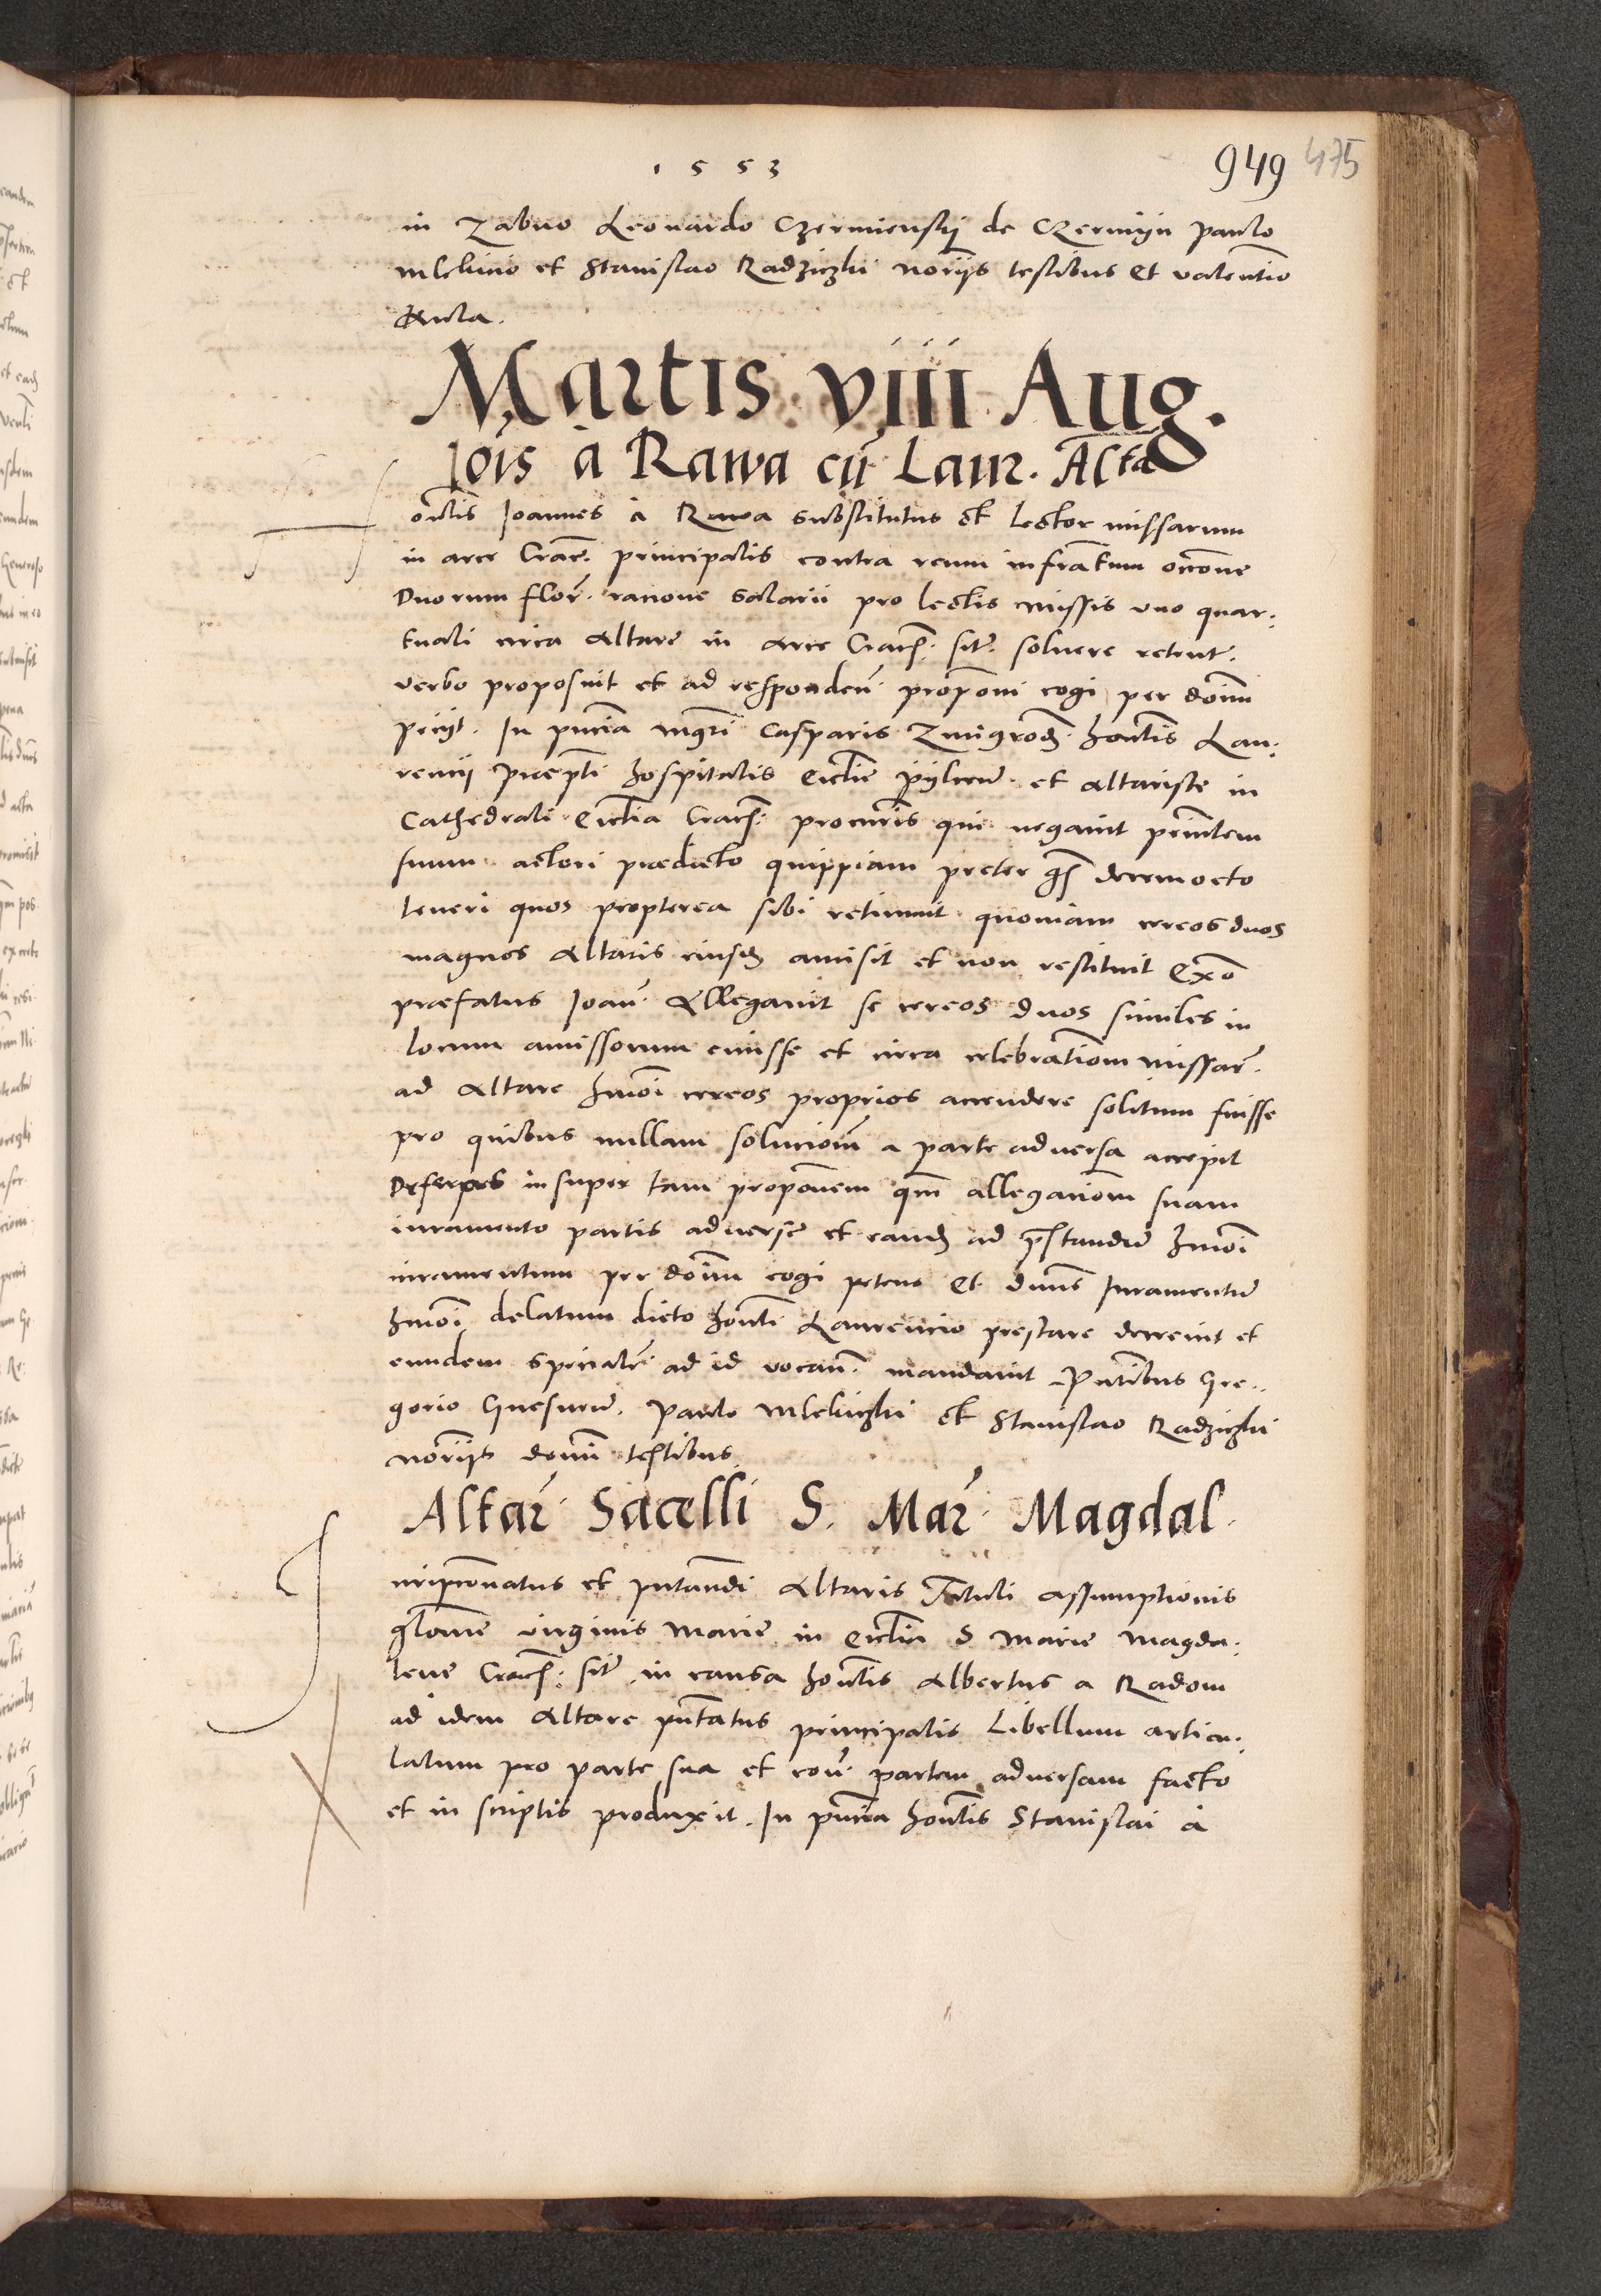 1553
949 475
in Zabno Leonardo Czermiensky de Czermyn paulo
mlekino et Stanislao Radziczki norijs testibus et valentino
Martis viii Aug.
Jois à Rawa cū Laur. Alta
Honlis Joannes à Rawa substitutus et lector missarum
in arce Crac. principalis contra reum infratum occōne
Duorum flor. racione salarii pro lectis missis uno quar:
tuali circa Altare in arce Cracs. sit. soluere retent.
verbo proposuit et ad responden. proponi cogi per doīm
petijt. In pncia mgri Casparis Zmigrod. honlis Lau:
rencij praepti hospitalis Ecclie et altariste in
Cathedrali Ecclia Cracs. procuris qui negauit prinlem
suum actori praedicto quippiam preter gs decemocto
teneri quos propterea sibi retinuit quoniam cereos duos
magnos Altaris eiusd amisit et non restituit Exo
praefatus Joan. Allegauit se cereos duos similes in
locum amissorum emisse et circa celebrationem missar.
ad Altare hmoi cereos proprios accendere solitum fuisse
pro quibus nullam solucionem a parte aduersa accepit
Deferens insuper tam proponem qm allegationem suam
iuramento partis aduerse et eand ad prestandum hmoi
iuramentum per doīm cogi petens Et dnus Juramentum
hmoi delatum dicto honli Laurencio prestare decreuit et
eundem specialr ad id vocan. mandauit Pntibus Gre..
gorio Gnesnen. Paulo Mlekiczki et Stanislao Radziczki
norijs testibus
Altar. Sacelli S. Mar. Magdal.
Juripronatus et pntandi Altaris Tituli assumptionis
gloriose virginis Marie in Ecclia S Marie Magda:
lene Cracs. sit. in causa honlis Albertus a Radom
ad idem Altare pntatus principalis Libellum articu:
latum pro parte sua et con. partem aduersam facto
et in scriptis produxit. In pncia honlis Stanislai à